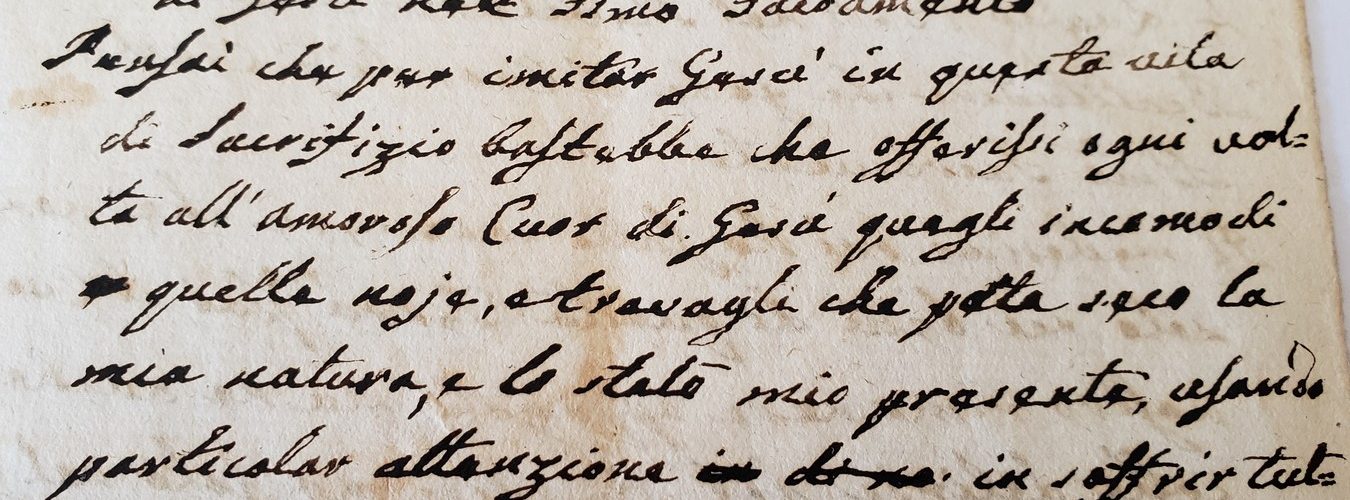 di Gesù nel SSmo Sacramento
Pensai che per imitar Gesù in questa vita
di Sacrifizio bastebbe che offerissi ogni vol=
ta all'amoroso Cuor di Gesù quegli incomodi
quelle noje, e travagli che porta seco la
mia natura, e lo stato mio presente, usando
particolar attenzione in di ne in soffrir tut=